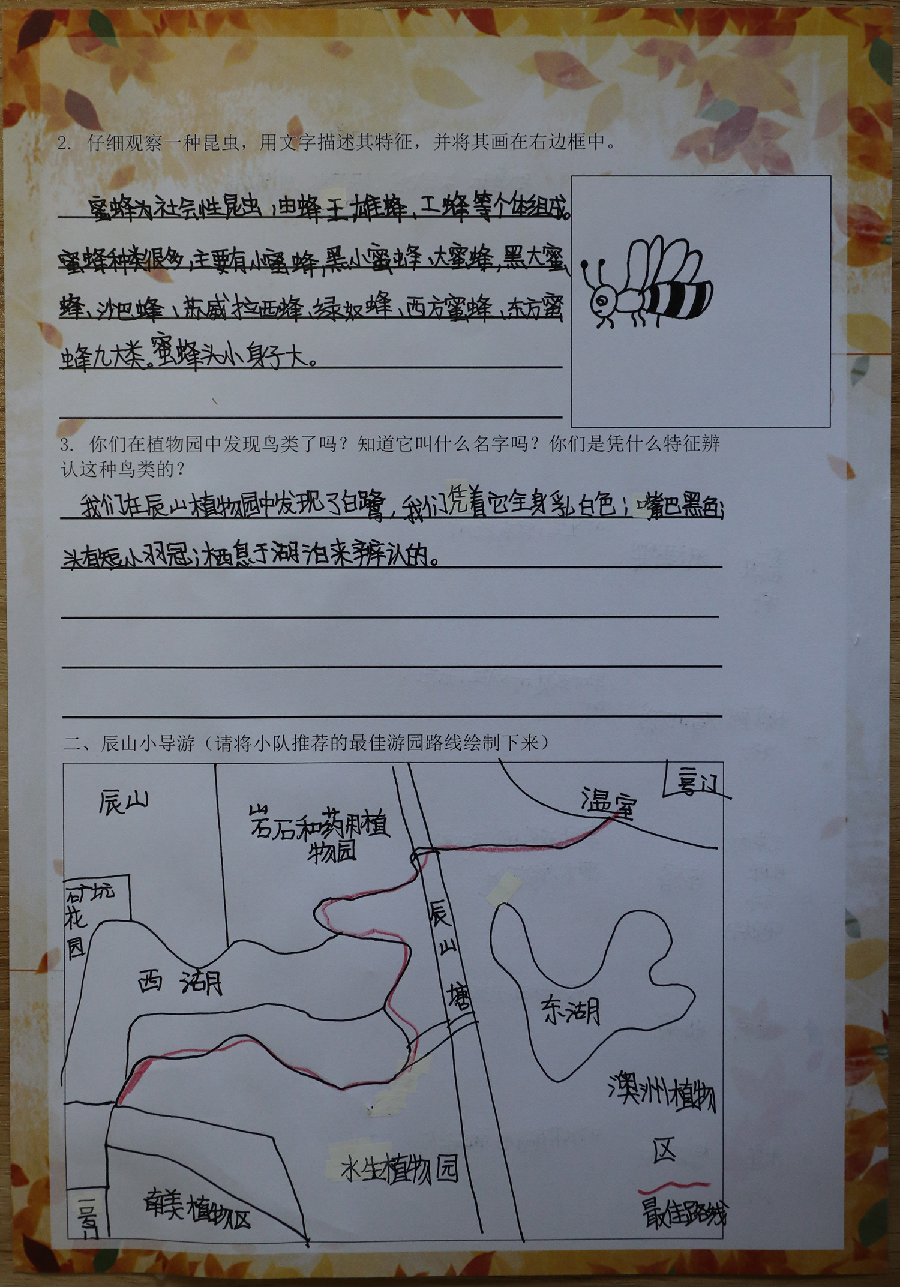 2. 仔细观察一种昆虫，用文字描述其特征，并将其画在右边框中。
蜜蜂为社会性昆虫，由蜂王、雄蜂、工蜂等个体组成。
蜜蜂种类很多，主要有小蜜蜂、黑小蜜蜂、大蜜蜂、黑大蜜
蜂、沙巴蜂、苏威拉西蜂、绿奴蜂、西方蜜蜂、东方蜜
蜂九大类。蜜蜂头小身子大。
3. 你们在植物园中发现鸟类了吗？知道它叫什么名字吗？你们是凭什么特征辨
认这种鸟类的？
我们在辰山植物园中发现了白鹭，我们凭着它全身乳白色；嘴巴黑色；
头有短小羽冠；栖息于湖泊来辨认的。
二、辰山小导游（请将小队推荐的最佳游园路线绘制下来）
辰山
岩石和药用植
物园
温室
号门
矿坑
花
园
西湖
辰
山
塘
东湖
澳洲植物
区
水生植物园
南美植物区
一号门
最佳路线